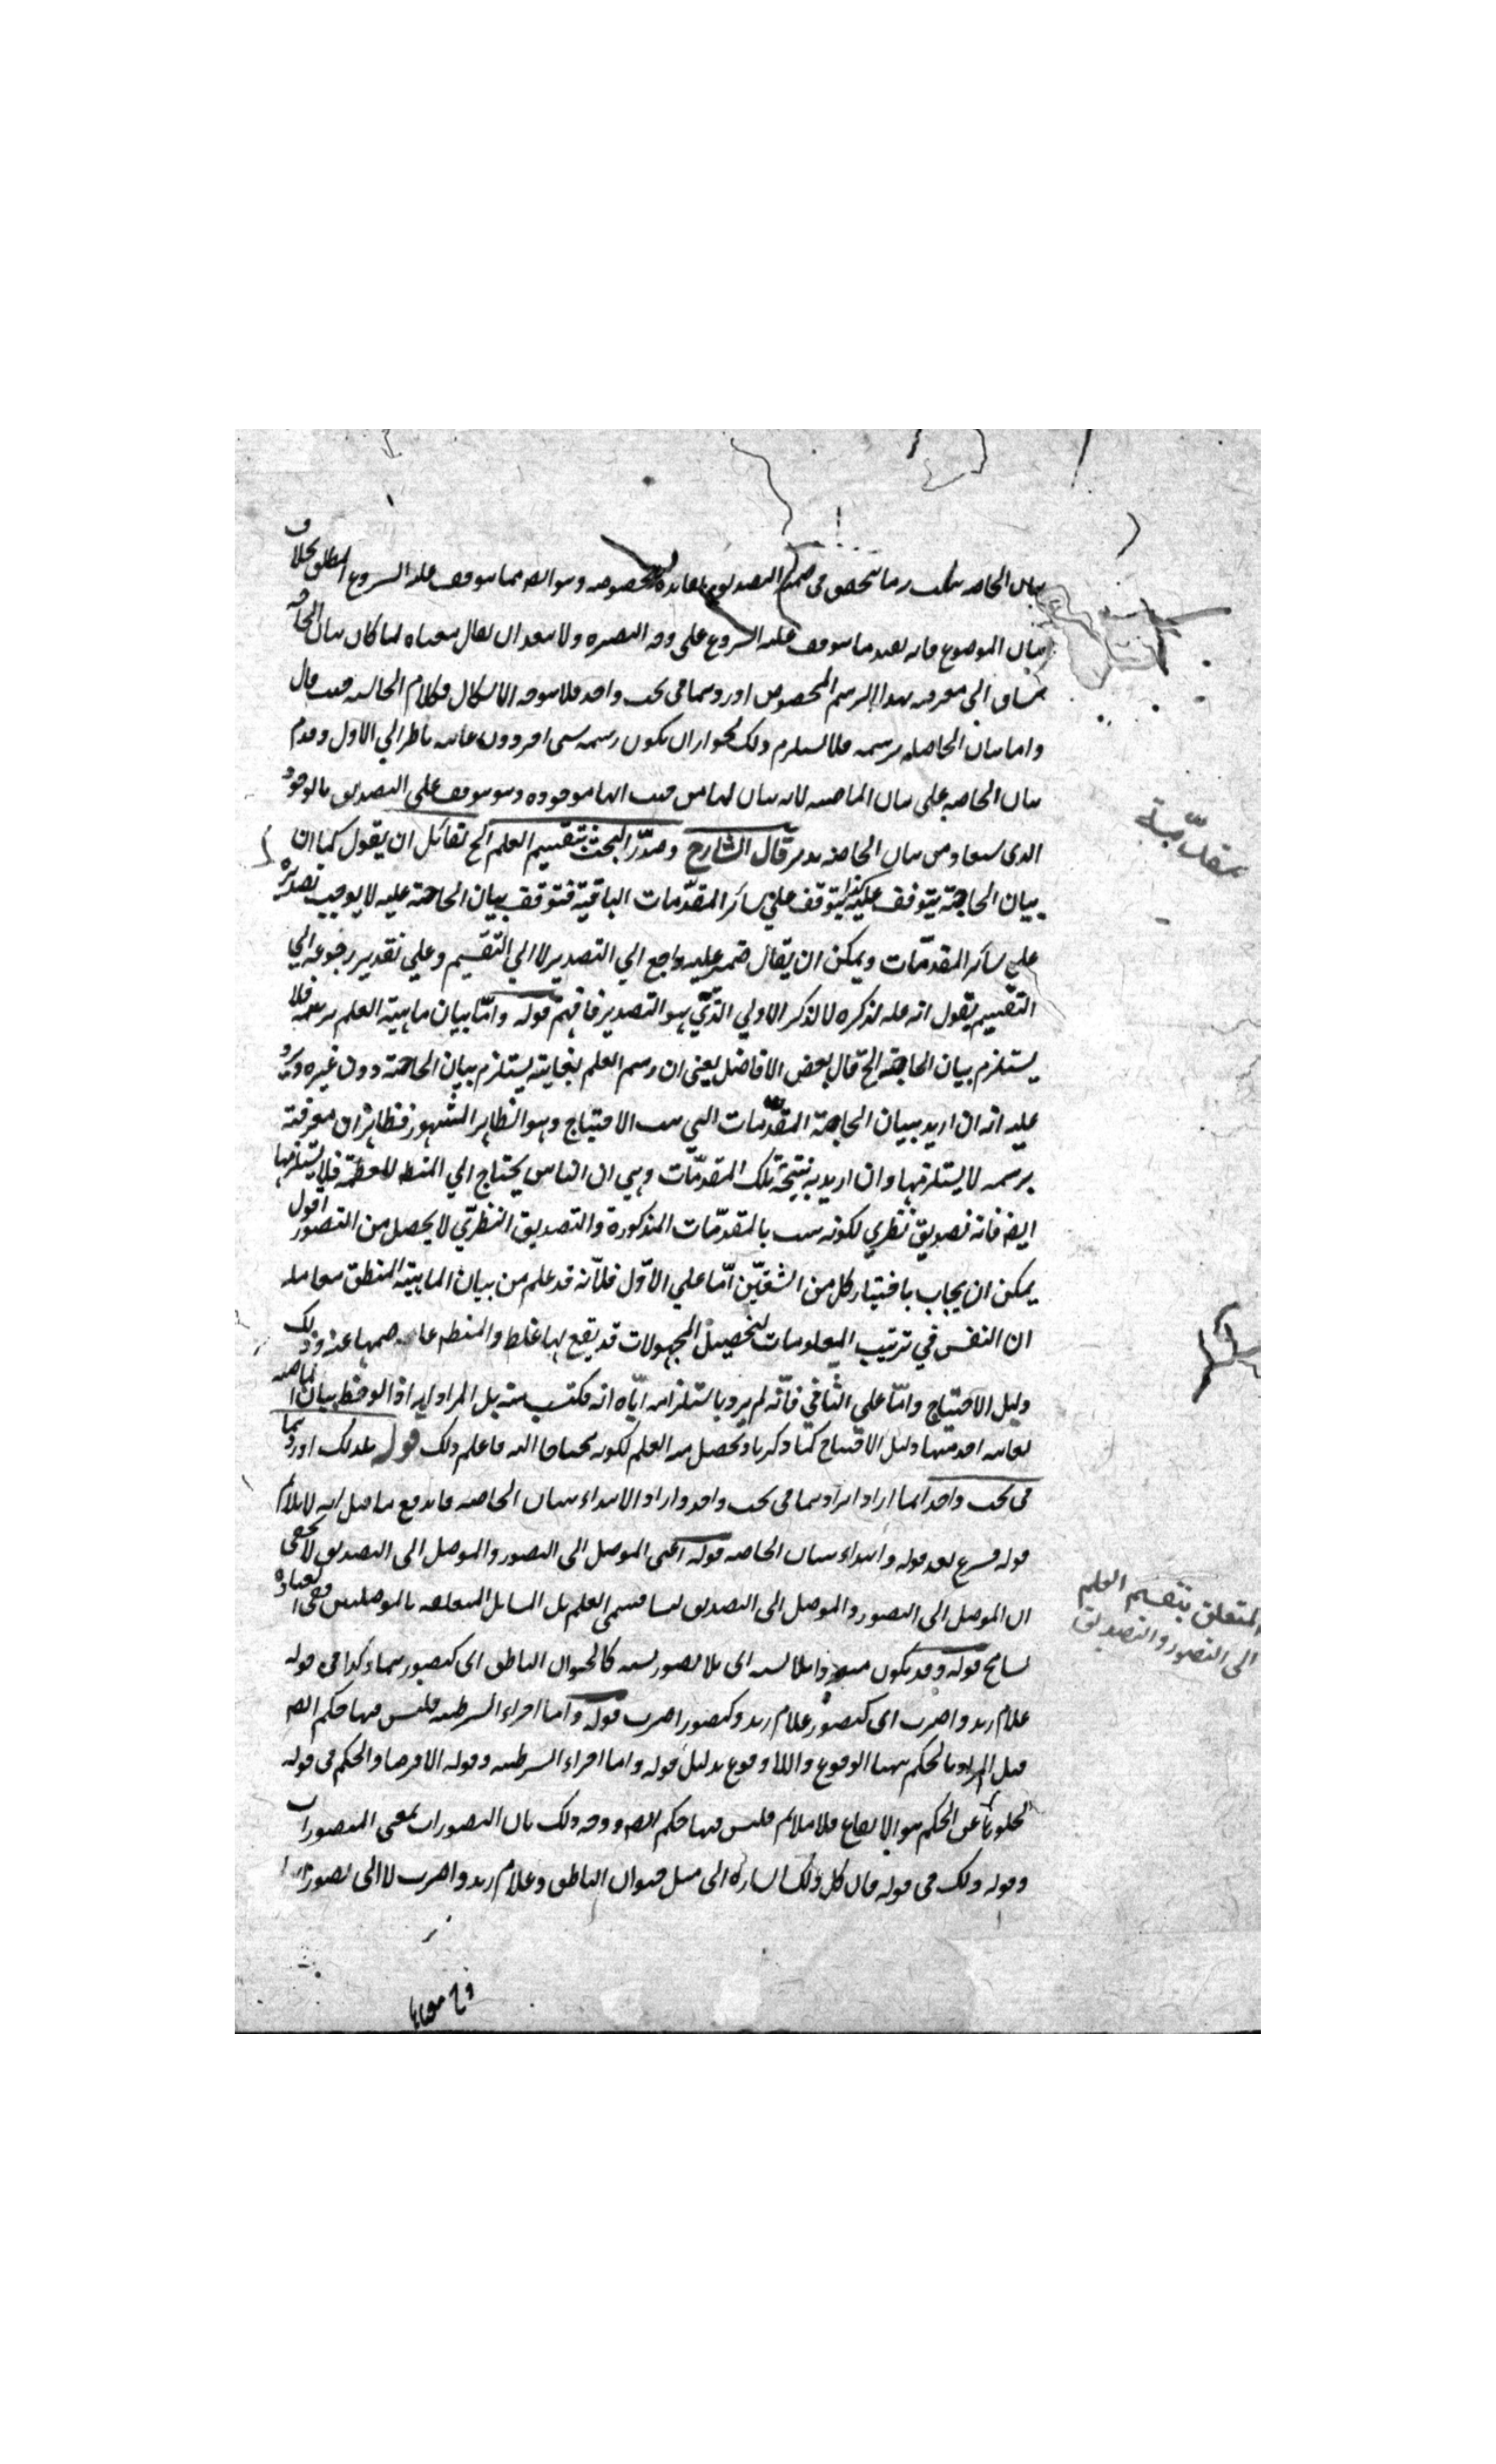 بيان الحاجة ليست رسما يتحقق في ضمنه التصديق بفائدة مخصوصة وهو ايضا مما يتوقف عليه الشروع المطلق بخلاف
بيان الموضوع فانه يفيد ما يتوقف عليه الشروع على وجه البصيرة ولا يبعد ان يقال معناه لما كان بيان الحاجة
ينساق الى معرفته بهذا الرسم المخصوص اوردهما في بحث واحد فلا يتوجه الاشكال فكلام الحاشية حيث قال
واما بيان الحاجة برسمه فلا يستلزم ذلك لجواز ان يكون رسمه بشيء اخر دون غايته ناظر الي الاول وقدم
بيان الحاجة على بيان الماهية لانه بيان لها من حيث انها موجودة وهو موقوف على التصديق بالوجود
الذي يستفاد من بيان الحاجة تدبر قال الشارح وصدّر البحث بتقسيم العلم الخ لقائل ان يقول كما ان
بيان الحاجة يتوقف عليه كذا يتوقف علي سائر المقدّمات الباقية فتوقف بيان الحاجة عليه لا يوجب تصديره
علي سائر المقدّمات ويمكن ان يقال ضمير عليه راجع الي التصدير لا الي التقسيم وعلي تقدير رجوعه الي
التقسيم يقول انه علة لذكره لا لذكر الاولي الذّي هو التصدير فافهم قوله وامّا بيان ماهية العلم برسمه فلا
يستلزم بيان الحاجة الخ قال بعض الافاضل يعني ان رسم العلم بغايته يستلزم بيان الحاجة دون غيره ويرد
عليه انه ان اريد ببيان الحاجة المقدّمات التي بينت الاحتياج وهو الظاهر المشهور فظاهر ان معرفته
برسمه لا يستلزمها وان اريد به نتيجة تلك المقدّمات وهي ان الناس يحتاج الي المنطق للعظمة فلا يستلزمها
ايضا فانه تصديق نظري لكونه يثبت بالمقدّمات المذكورة والتصديق النظرّي لا يحصل من التصور اقول
يمكن ان يجاب باختيار كل من الشقيّن امّا علي الاوّل فلاّنه قد علم من بيان الماهية المنطق معا مله
ان النفس في ترتيب المعلومات لتحصيل المجهولات قد يقع لها غلط والمنطق عاصمها عنه وذلك
دليل الاحتياج وامّا علي الثاني فانّه لم يرد باستلزامه ايّاه انه مكتسب منه بل المراد انه اذا لوحظ بيان الماهية
بغايته اخذ منها دليل الاحتياج كما ذكرنا وتحصل منه العلم لكونه محتاجا اليه فاعلم ذلك قوله فلذلك اوردهما
في بحث واحد انما اراد ايرادهما في بحث واحد واراد الابتداء ببيان الحاجة فاندفع ما قيل انه لا يلائم
قوله فشرع بعد قوله وابتداء ببيان الحاجة قوله اعني الموصل الى التصور والموصل الى التصديق لا يخفى
ان الموصل الى التصور والموصل الى التصديق ليسا قسمي العلم بل المسائل المتعلقة بالموصلين ففي العبارة
تسامح قوله وقد يكون متعددا بلا نسبة اى بلا تصور نسبة كالحيوان الناطق اى كتصور هما وكذا في قوله
غلام زيد واضرب اى كتصور غلام زيد وكتصور اضرب قوله واما اجزاء الشرطية فليس فيها حكم ايضا
قيل المراد بالحكم ههنا الوقوع واللا وقوع بدليل قوله واما اجزاء الشرطية وقوله الا فرضا والحكم في قوله
لخلوها عن الحكم هو الايقاع فلا ملائم فليس فيها حكم ايضا ووجه ذلك بان التصورات بمعنى المتصورات
وقوله ذلك في قوله فان كل ذلك اشارة الى مثل حيوان الناطق وغلام زيد واضرب لا الى تصورات
المتعلق بتقسيم العلم
الى التصور والتصديق